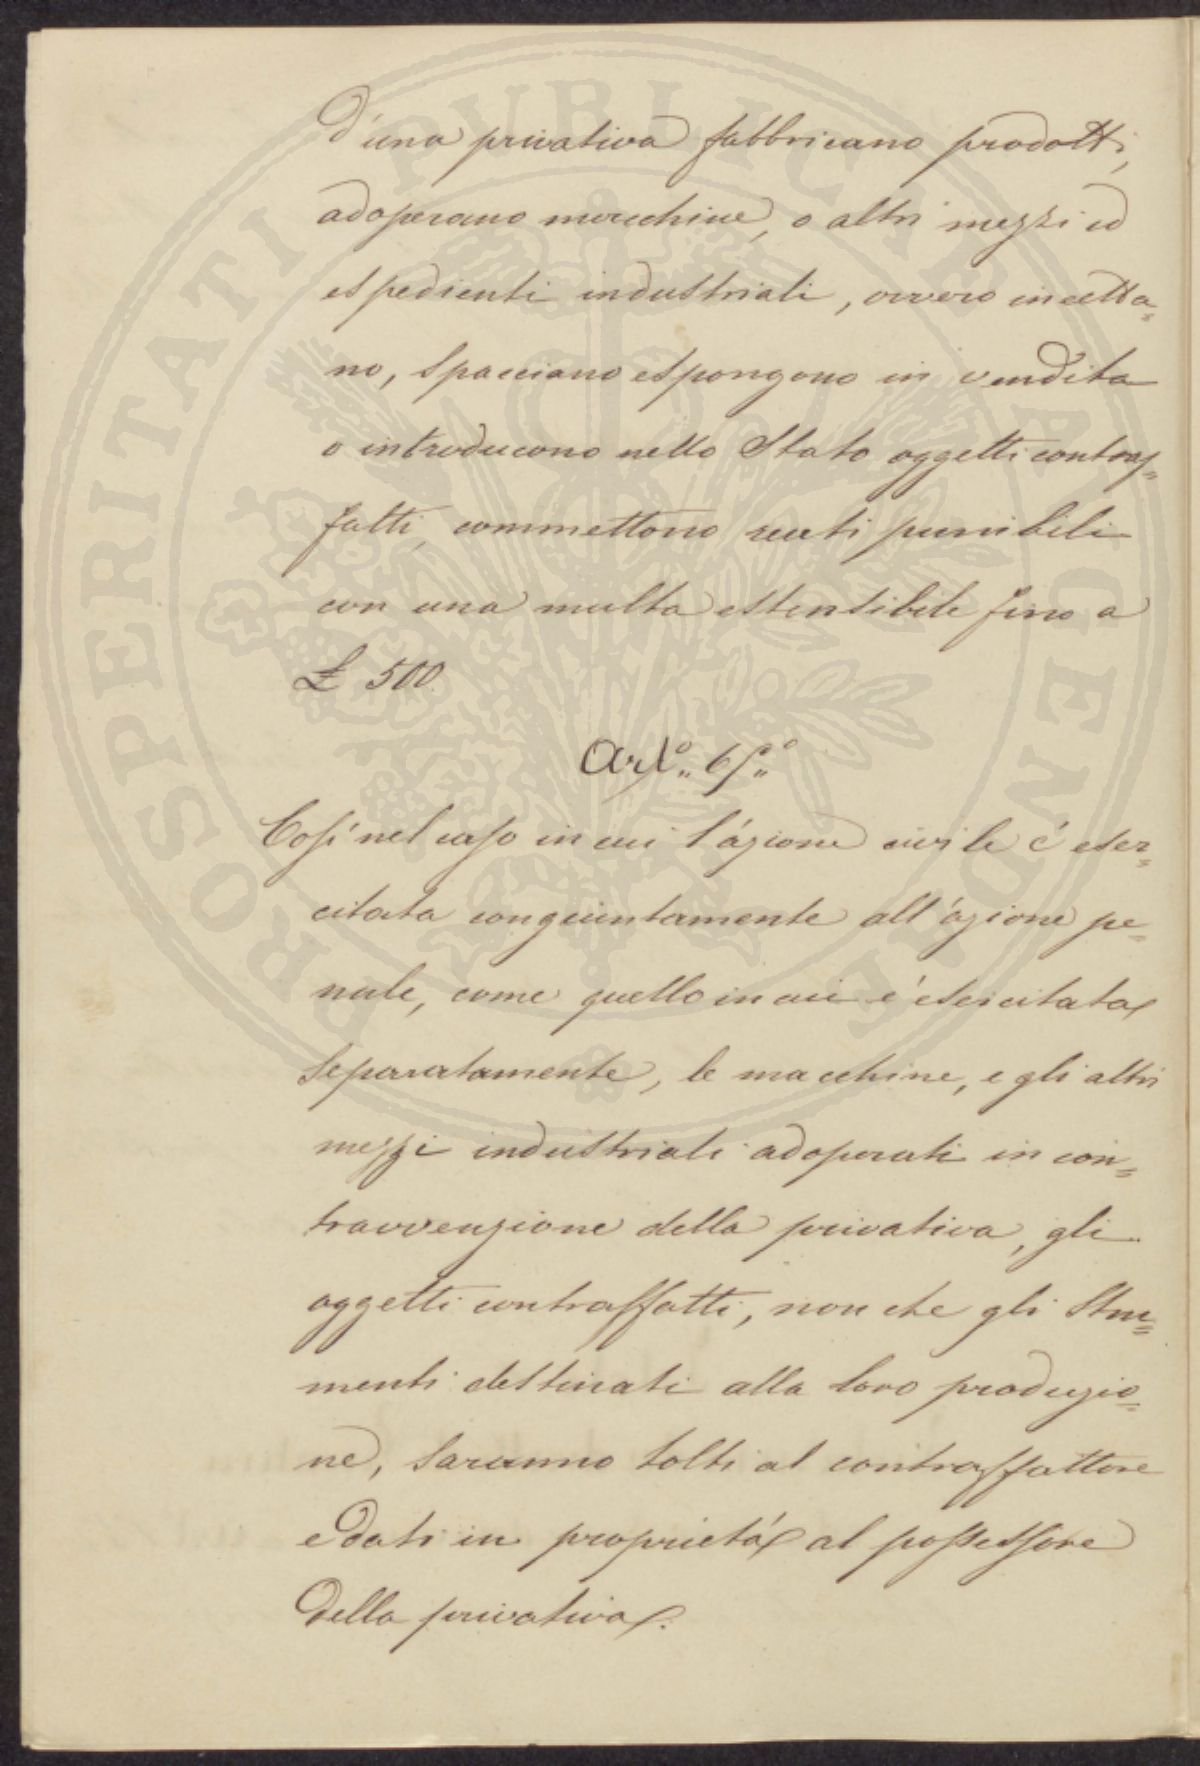 PROSPERITATI PUBLICAE AUGENDAE
d'una privativa fabbricano prodotti,
adoperano macchine, o altri mezzi ed
espedienti industriali, ovvero incetta=
no, spacciano espongono in vendita
o introducono nello Stato oggetti contraf=
fatti, commettono reati punibili
con una multa estensibile fino a
£ 500.
Art.º 65.º
Così nel caso in cui l'azione civile é eser=
citata congiuntamente all'azione pe=
nale, come quello in cui é esercitata
separatamente, le macchine, e gli altri
mezzi industriali adoperati in con=
travvenzione della privativa, gli
oggetti contraffatti, non che gli stru=
menti destinati alla loro produzio=
ne, saranno tolti al contraffattore
e dati in proprietá al possessore
della privativa.